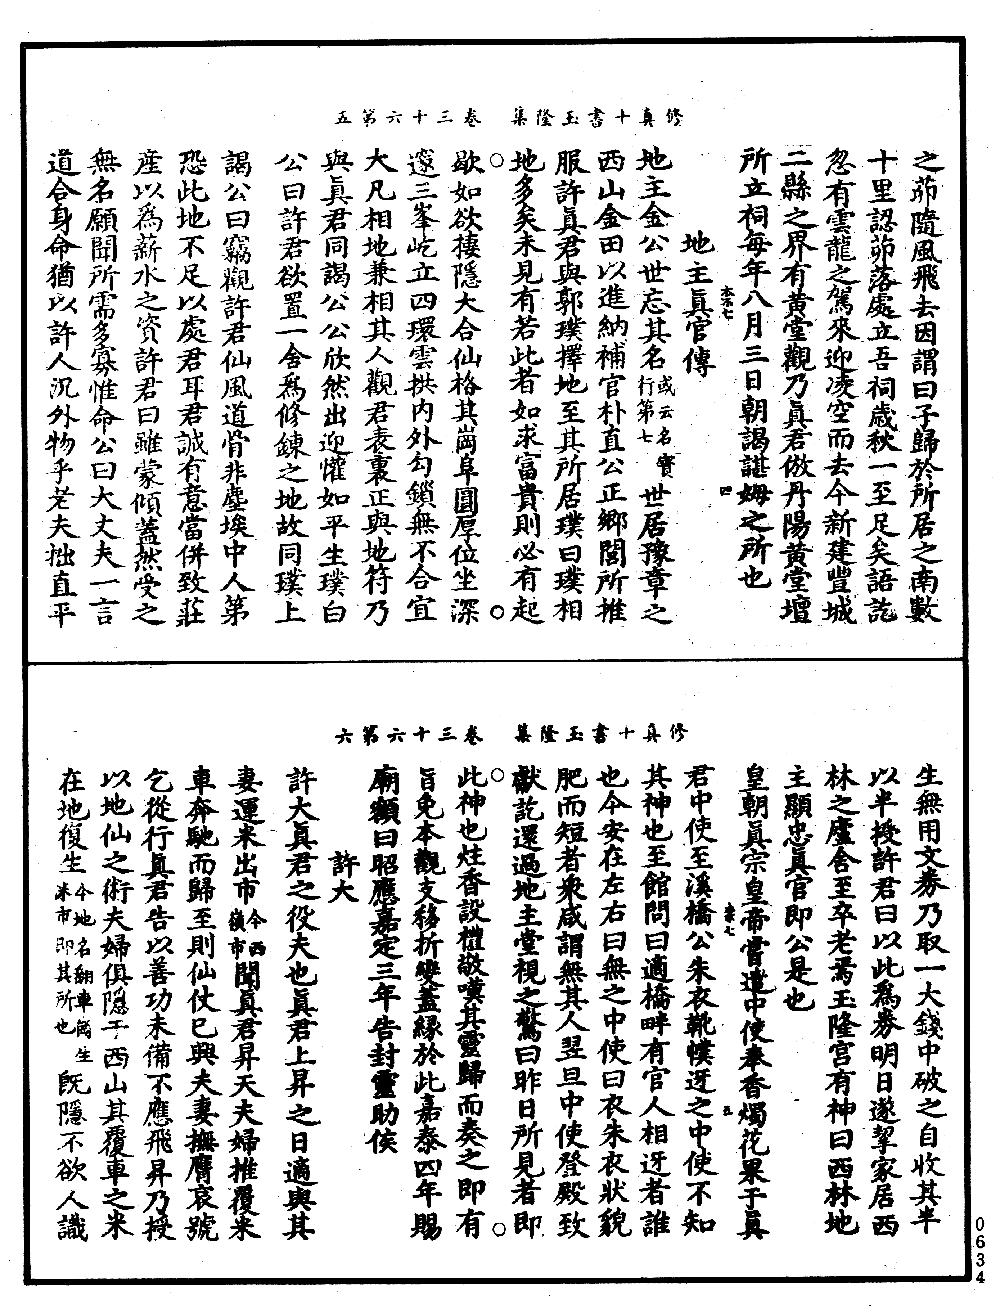 修真十書玉隆集　卷三十六第五
之茆隨風飛去因謂曰子歸於所居之南數
十里認茆落處立吾祠歲秋一至足矣語訖
忽有雲龍之駕來迎凌空而去今新建豐城
二縣之界有黃堂觀乃真君倣丹陽黃堂壇
所立祠每年八月三日朝謁諶姆之所也
四
地主真官傳
地主金公世忘其名或云名寶行第七世居豫章之
西山金田以進納補官朴直公正鄉閭所推
服許真君與郭璞擇地至其所居璞曰璞相
地多矣未見有若此者如求富貴則必有起
歇如欲棲隱大合仙格其崗阜圓厚位坐深
邃三峯屹立四環雲拱內外勾鎖無不合宜
大凡相地兼相其人觀君表裏正與地符乃
與真君同謁公公欣然出迎懽如平生璞白
公曰許君欲置一舍為修鍊之地故同璞上
謁公曰竊觀許君仙風道骨非塵埃中人第
恐此地不足以處君耳君誠有意當併致莊
產以為薪水之資許君曰雖蒙傾蓋然受之
無名願聞所需多寡惟命公曰大丈夫一言
道合身命猶以許人況外物乎老夫拙直平
修真十書玉隆集　卷三十六第六
生無用文券乃取一大錢中破之自收其半
以半授許君曰以此為券明日遂挈家居西
林之廬舍至卒老焉玉隆宮有神曰西林地
主顯忠真官即公是也
皇朝真宗皇帝嘗遣中使奉香燭花果于真
五
君中使至溪橋公朱衣靴幞迓之中使不知
其神也至館問曰適橋畔有官人相迓者誰
也今安在左右曰無之中使曰衣朱衣狀貌
肥而短者衆咸謂無其人翌旦中使登殿致
獻訖還過地主堂視之驚曰昨日所見者即
此神也炷香設禮敬嘆其靈歸而奏之即有
旨免本觀支移折變蓋緣於此嘉泰四年賜
廟額曰昭應嘉定三年告封靈助侯
許大
許大真君之役夫也真君上昇之日適與其
妻運米出市今西嶺市聞真君昇天夫婦推覆米
車奔馳而歸至則仙仗已興夫妻撫膺哀號
乞從行真君告以善功未備不應飛昇乃授
以地仙之術夫婦俱隱于西山其覆車之米
在地復生今地名翻車崗生米市即其所也既隱不欲人識
0634